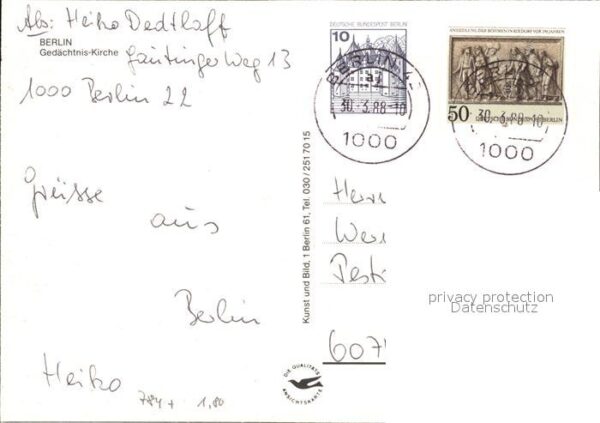 Abs: Heiko Dedthoff
BERLIN
Gedächtnis-Kirche
Gautinger Weg 13
1000 Berlin 22
Grüsse
aus
Berlin
Heiko
784 + 1,80
DEUTSCHE BUNDESPOST BERLIN
10
BERLIN
30.3.88-10
1000
50
DEUTSCHE BUNDESPOST BERLIN
BERLIN
30.3.88-10
1000
Kunst und Bild, 1 Berlin 61, Tel. 030/251 70 15
Herr
Wer
Pest
607
privacy protection
Datenschutz
DIE QUALITÄTS
ANSICHTSKARTE